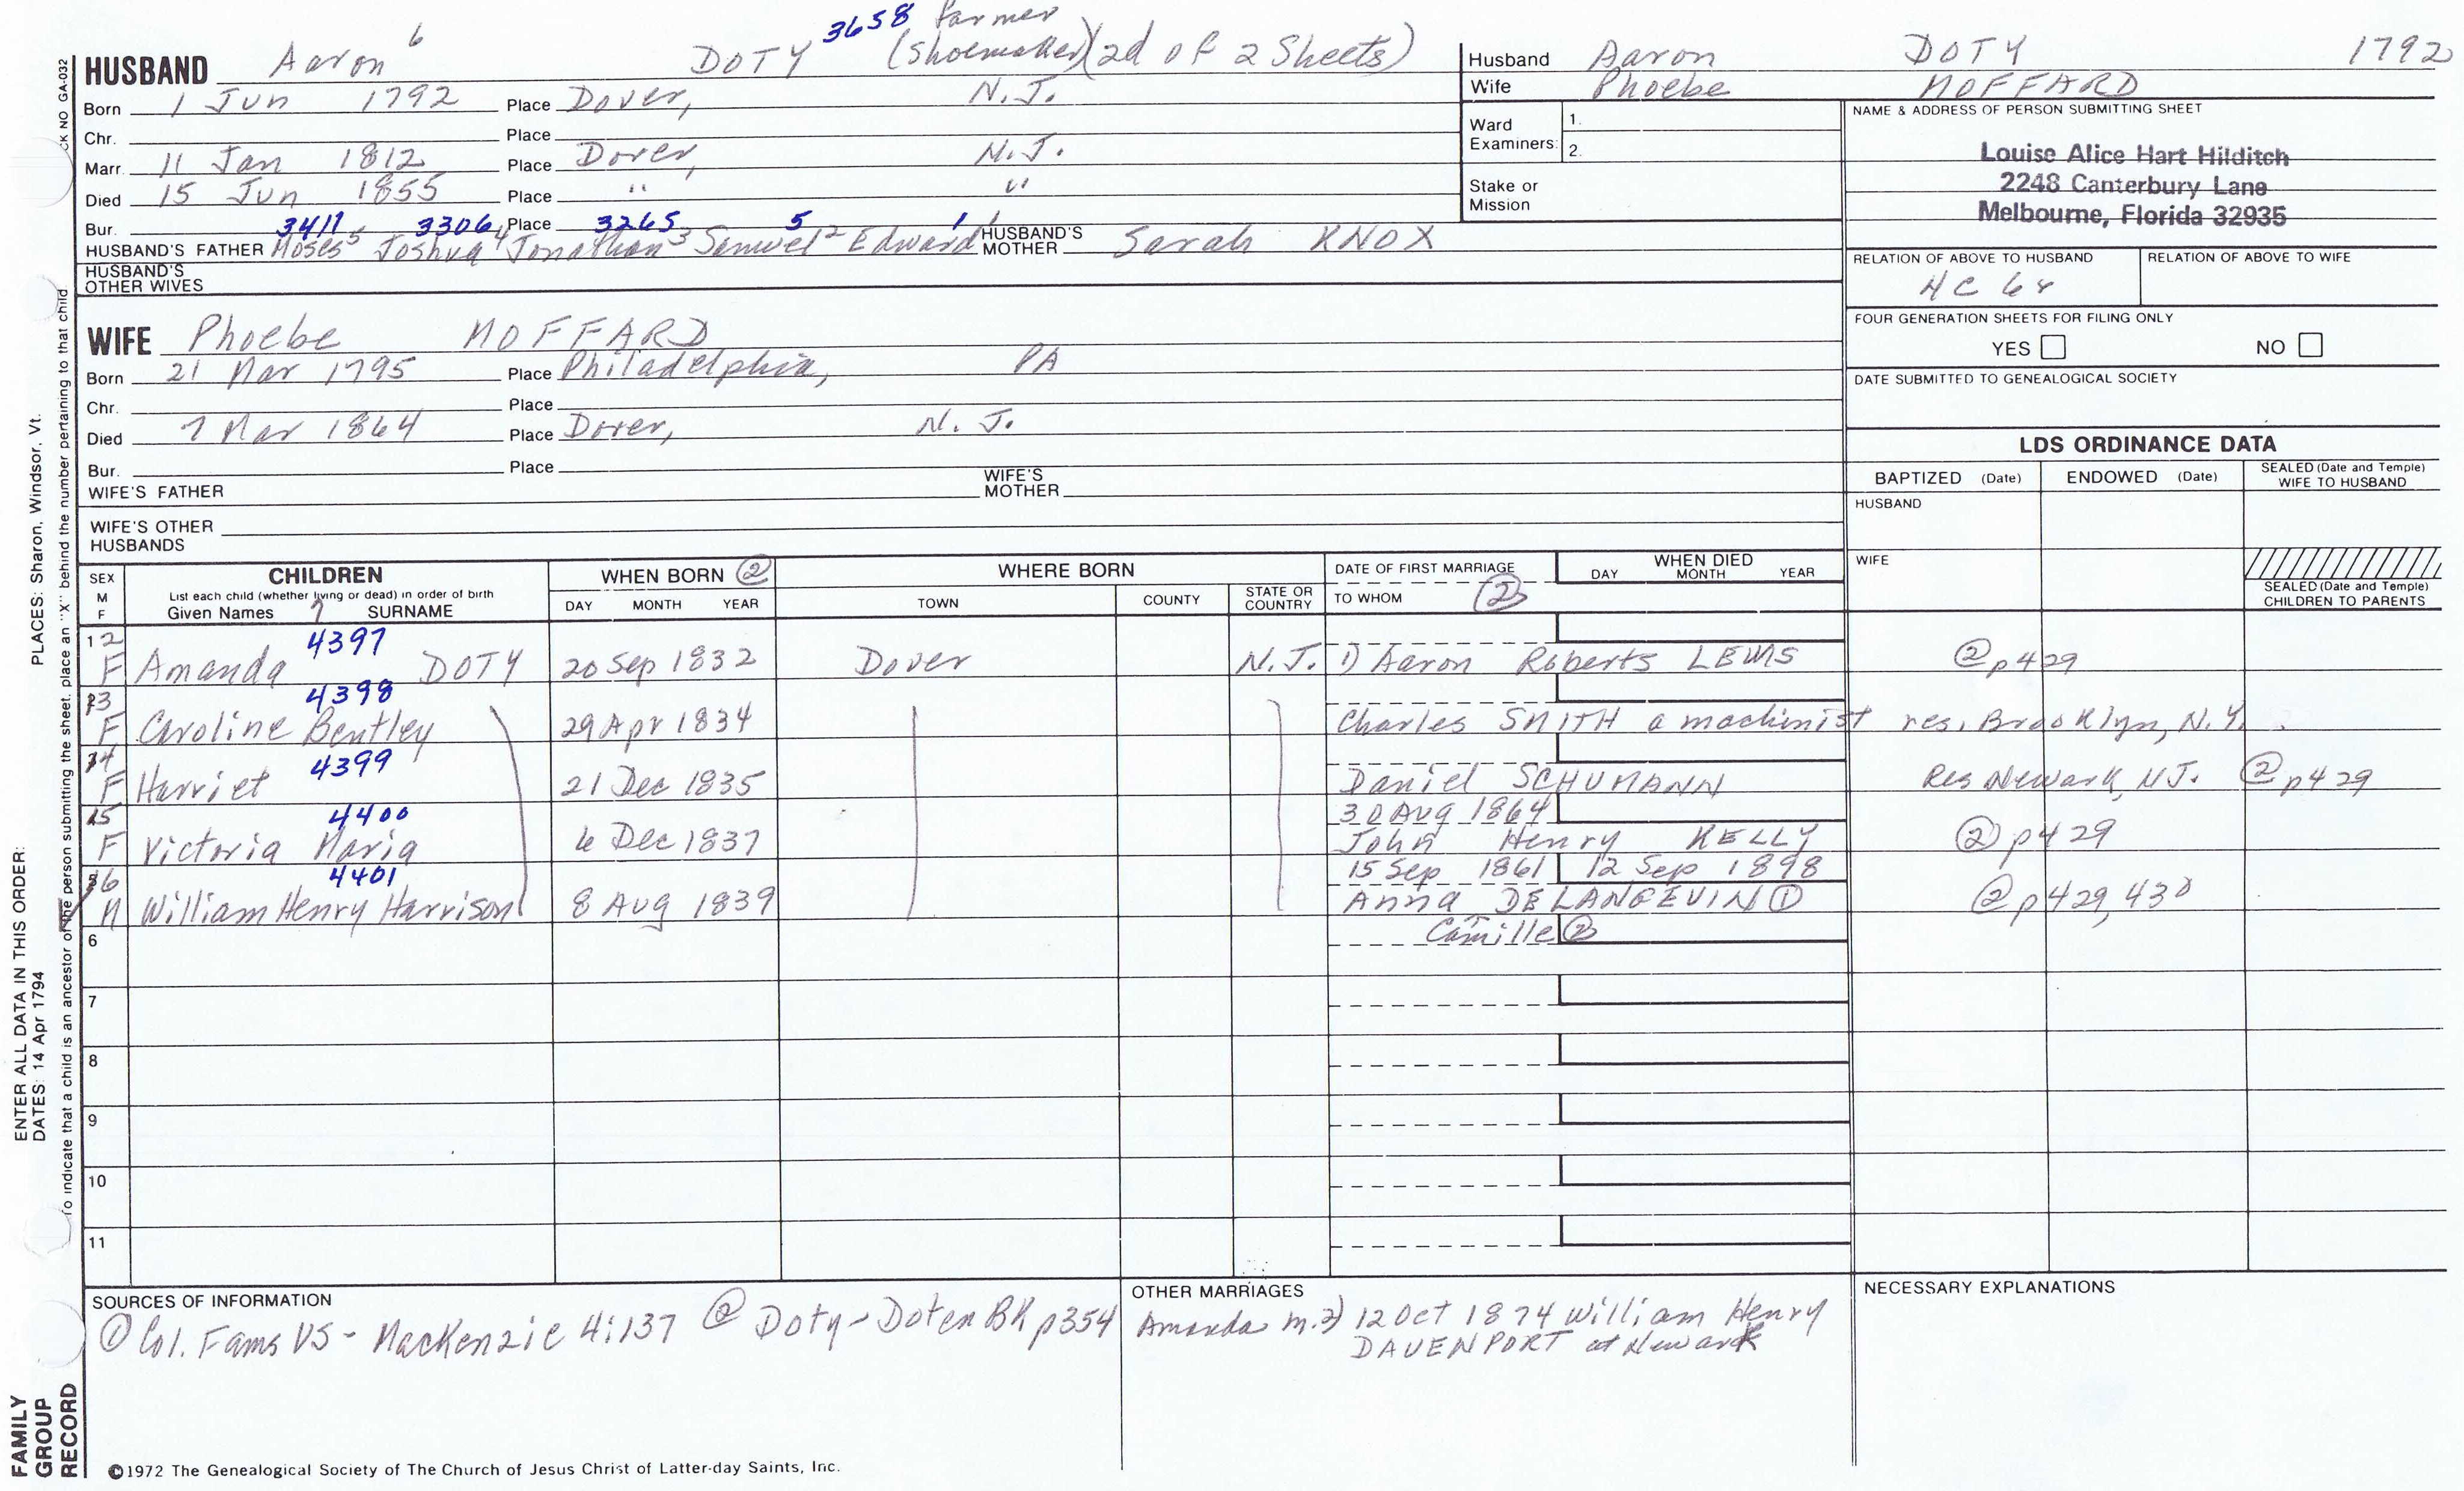 3658 Farmer
HUSBAND Aaron 6 DOTY (Shoemaker) (2d of 2 Sheets)
Born 1 Jun 1792 Place Dover, N.J.
Chr. Place
Marr. 11 Jan 1812 Place Dover, N.J.
Died 15 Jun 1855 Place " "
Bur. 3411 3306 Place 3265 5 1
HUSBAND'S FATHER Moses5 Joshua4 Jonathan3 Samuel2 Edward1 HUSBAND'S MOTHER Sarah KNOX
HUSBAND'S OTHER WIVES
Husband Aaron DOTY 1792
Wife Phoebe MOFFARD
Ward Examiners: 1.
2.
Stake or Mission
NAME & ADDRESS OF PERSON SUBMITTING SHEET
Louise Alice Hart Hilditch
2248 Canterbury Lane
Melbourne, Florida 32935
RELATION OF ABOVE TO HUSBAND RELATION OF ABOVE TO WIFE
4C 6r
FOUR GENERATION SHEETS FOR FILING ONLY
YES NO
DATE SUBMITTED TO GENEALOGICAL SOCIETY
WIFE Phoebe MOFFARD
Born 21 Mar 1795 Place Philadelphia, PA
Chr. Place
Died 7 Mar 1864 Place Dover, N.J.
Bur. Place
WIFE'S FATHER WIFE'S MOTHER
WIFE'S OTHER HUSBANDS
LDS ORDINANCE DATA
BAPTIZED (Date) ENDOWED (Date) SEALED (Date and Temple) WIFE TO HUSBAND
HUSBAND
WIFE
SEALED (Date and Temple) CHILDREN TO PARENTS
SEX M F CHILDREN
List each child (whether living or dead) in order of birth
Given Names 7 SURNAME
WHEN BORN ②
DAY MONTH YEAR
WHERE BORN
TOWN COUNTY STATE OR COUNTRY
DATE OF FIRST MARRIAGE
TO WHOM ②
WHEN DIED
DAY MONTH YEAR
12 4397
F Amanda DOTY 20 Sep 1832 Dover N.J. 1) Aaron Roberts LEWIS ② p429
13 4398
F Caroline Bentley 29 Apr 1834 Charles SMITH a machinist res. Brooklyn, N.Y.
14 4399
F Harriet 21 Dec 1835 Daniel SCHUMANN Res Newark, NJ. ② p429
15 4400 30 Aug 1864
F Victoria Maria 6 Dec 1837 John Henry KELLY ② p429
16 4401 15 Sep 1861 12 Sep 1898
M William Henry Harrison 8 Aug 1839 Anna DE LANGEVIN ① ② p429,430
6 Camille ②
7
8
9
10
11
SOURCES OF INFORMATION
① Col. Fams US - MacKenzie 4:137 ② Doty-Doten BK p354
OTHER MARRIAGES
Amanda m. 2) 12 Oct 1874 William Henry
DAVENPORT at Newark
NECESSARY EXPLANATIONS
©1972 The Genealogical Society of The Church of Jesus Christ of Latter-day Saints, Inc.
FAMILY GROUP RECORD
ENTER ALL DATA IN THIS ORDER:
DATES: 14 Apr 1794
PLACES: Sharon, Windsor, Vt.
To indicate that a child is an ancestor of the person submitting the sheet, place an "X" behind the number pertaining to that child.
CK NO GA-032